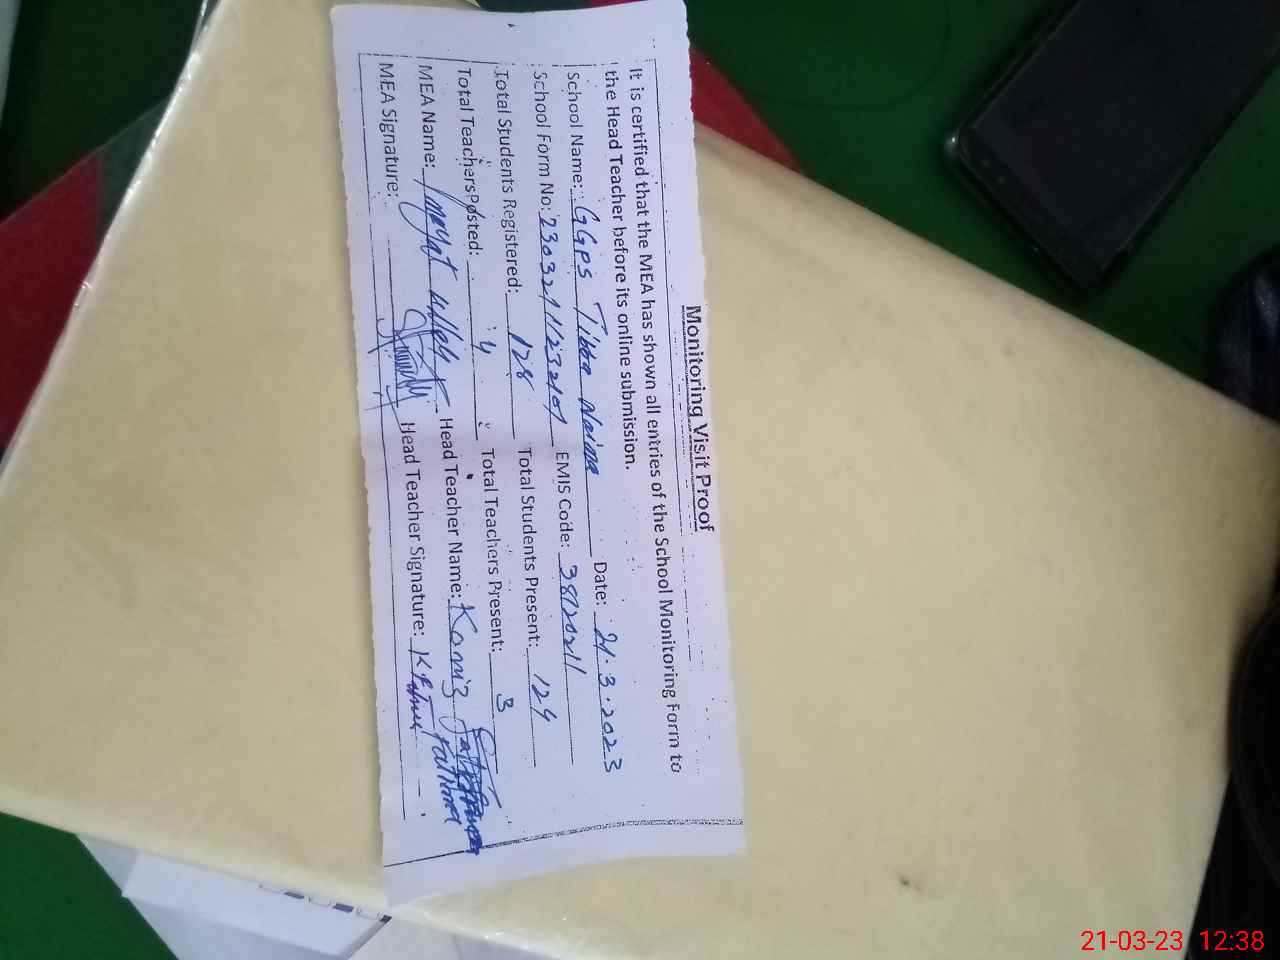 Monitoring Visit Proof
It is certified that the MEA has shown all entries of the School Monitoring Form to
the Head Teacher before its online submission.
School Name: GGPS Tibba Naima Date: 21.3.2023
School Form No: EMIS Code:
Total Students Registered: 128 Total Students Present: 124
Total Teachers Posted: 4 Total Teachers Present: 3
MEA Name: Inayat Ullah Head Teacher Name: Kaniz Fatima
MEA Signature: Head Teacher Signature: K. Fatima
21-03-23 12:38